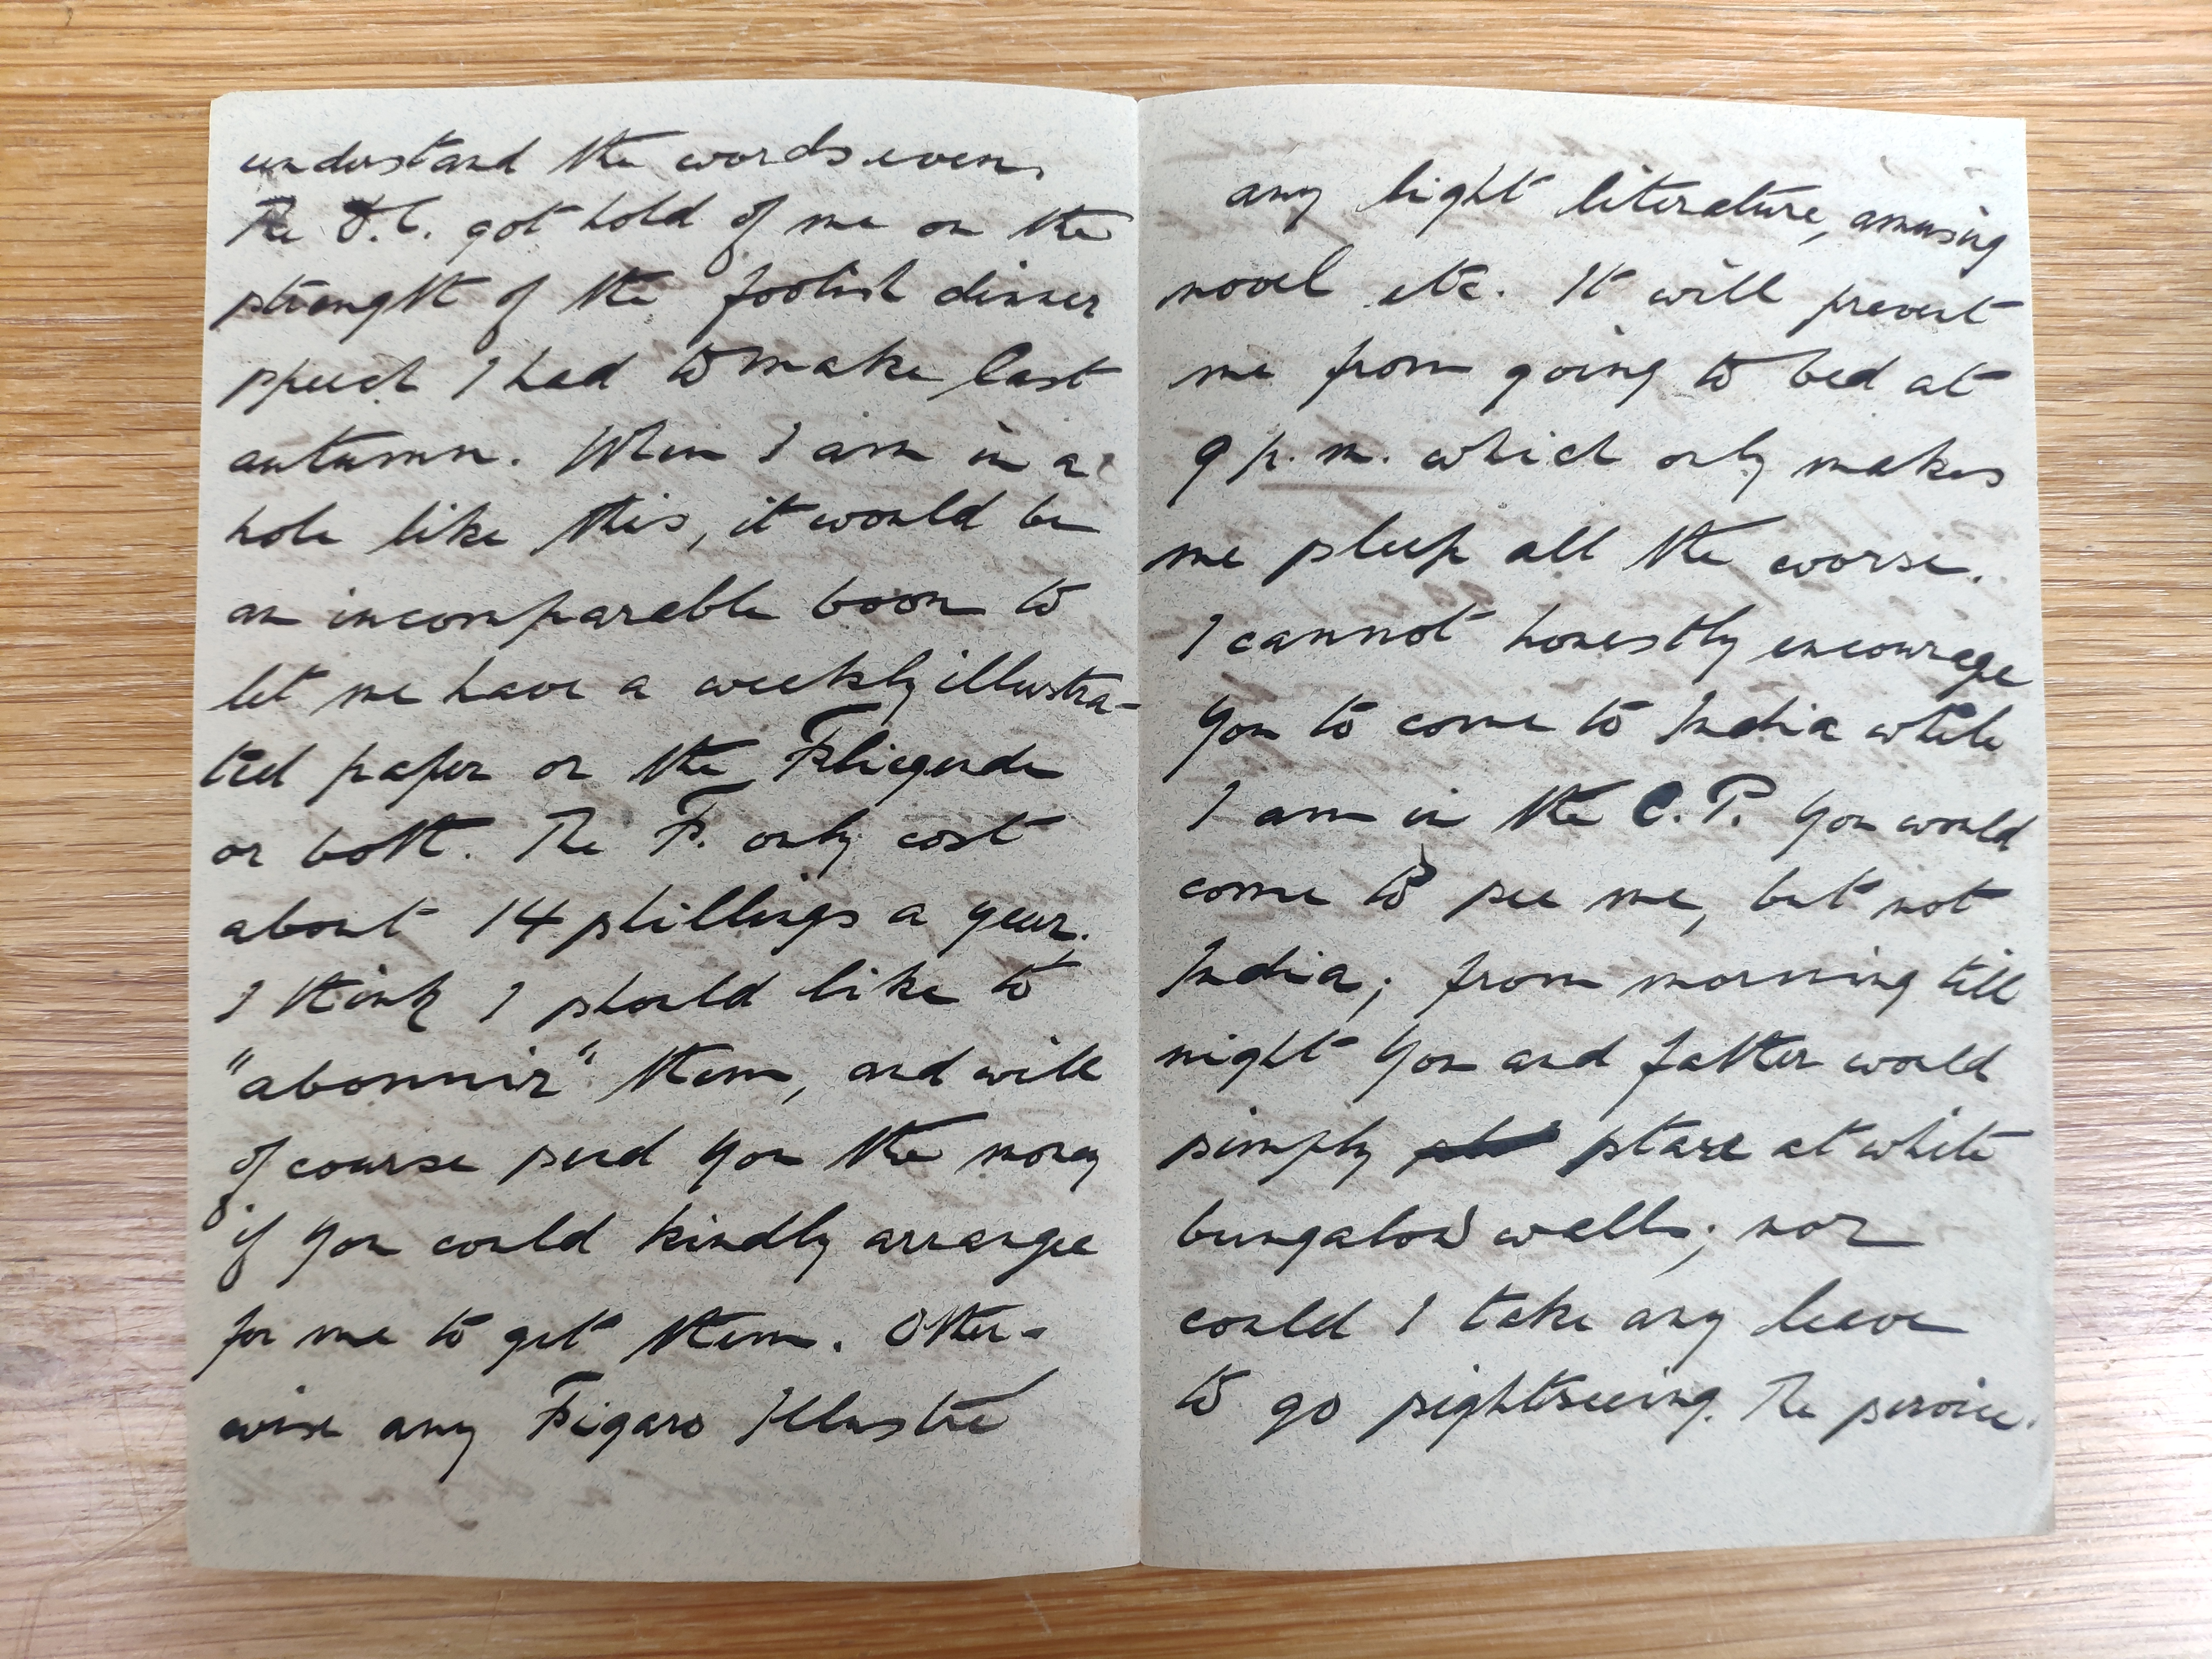 understand the words even.
The D.C. got hold of me on the
strength of the foolish dinner
speech I had to make last
autumn. When I am in a
hole like this, it would be
an incomparable boon to
let me have a weekly illustra-
ted paper or the Fliegende
or both. The F. only cost
about 14 shillings a year.
I think I should like to
"abonnir" them, and will
of course send you the money
if you could kindly arrange
for me to get them. Other-
wise any Figaro Illustré
any light literature, amusing
novel etc. It will prevent
me from going to bed at
9 p.m. which only makes
me sleep all the worse.
I cannot honestly encourage
you to come to India while
I am in the C.P. You would
come to see me, but not
India; from morning till
night you and father would
simply stare at white
bungalow walls; nor
could I take any leave
to go sightseeing. The service